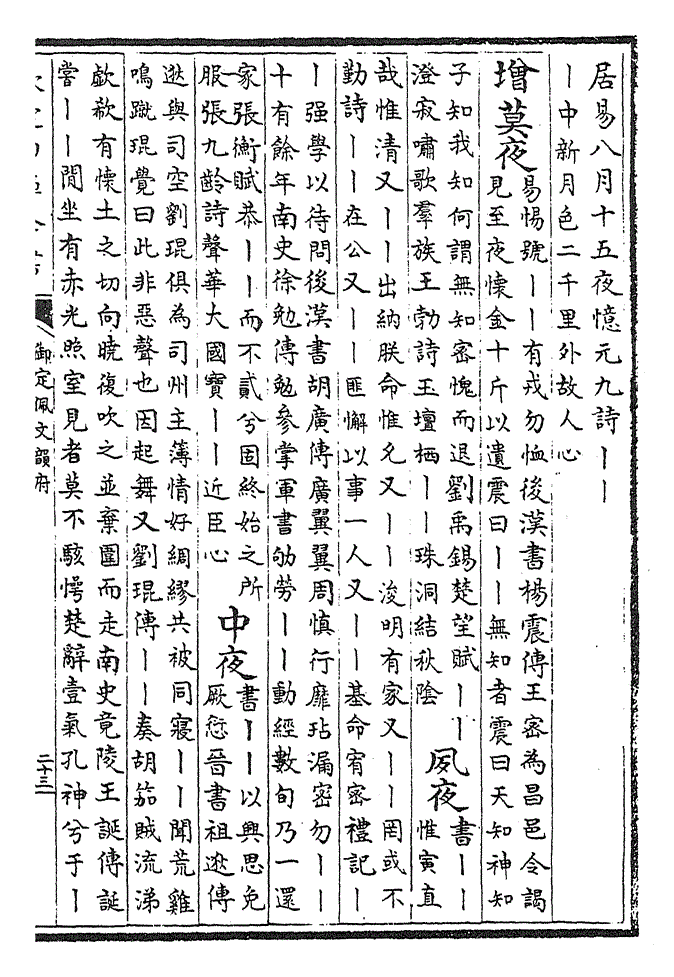 居易八月十五夜憶元九詩丨丨
丨中新月色二千里外故人心
增莫夜
易惕號丨丨有戎勿恤後漢書楊震傳王密為昌邑令謁
見至夜懷金十斤以遺震曰丨丨無知者震曰天知神知
子知我知何謂無知密愧而退劉禹錫楚望賦丨丨
澄寂嘯歌羣族王勃詩玉壇栖丨丨珠洞結秋陰
夙夜
書丨丨
惟寅直
哉惟清又丨丨出納朕命惟允又丨丨浚明有家又丨丨罔或不
勤詩丨丨在公又丨丨匪懈以事一人又丨丨基命宥密禮記丨
丨强學以待問後漢書胡廣傳廣翼翼周慎行靡玷漏密勿丨丨
十有餘年南史徐勉傳勉參掌軍書劬勞丨丨動經數旬乃一還
家張衡賦恭丨丨而不貳兮固終始之所
服張九齡詩聲華大國寶丨丨近臣心
中夜
書丨丨以興思免
厥愆晉書祖逖傳
逖與司空劉琨俱為司州主簿情好綢繆共被同寢丨丨聞荒雞
鳴蹴琨覺曰此非惡聲也因起舞又劉琨傳丨丨奏胡笳賊流涕
歔欷有懷土之切向曉復吹之並棄圍而走南史竟陵王誕傳誕
嘗丨丨閒坐有赤光照室見者莫不駭愕楚辭壹氣孔神兮于丨
御定佩文韻府
二十三